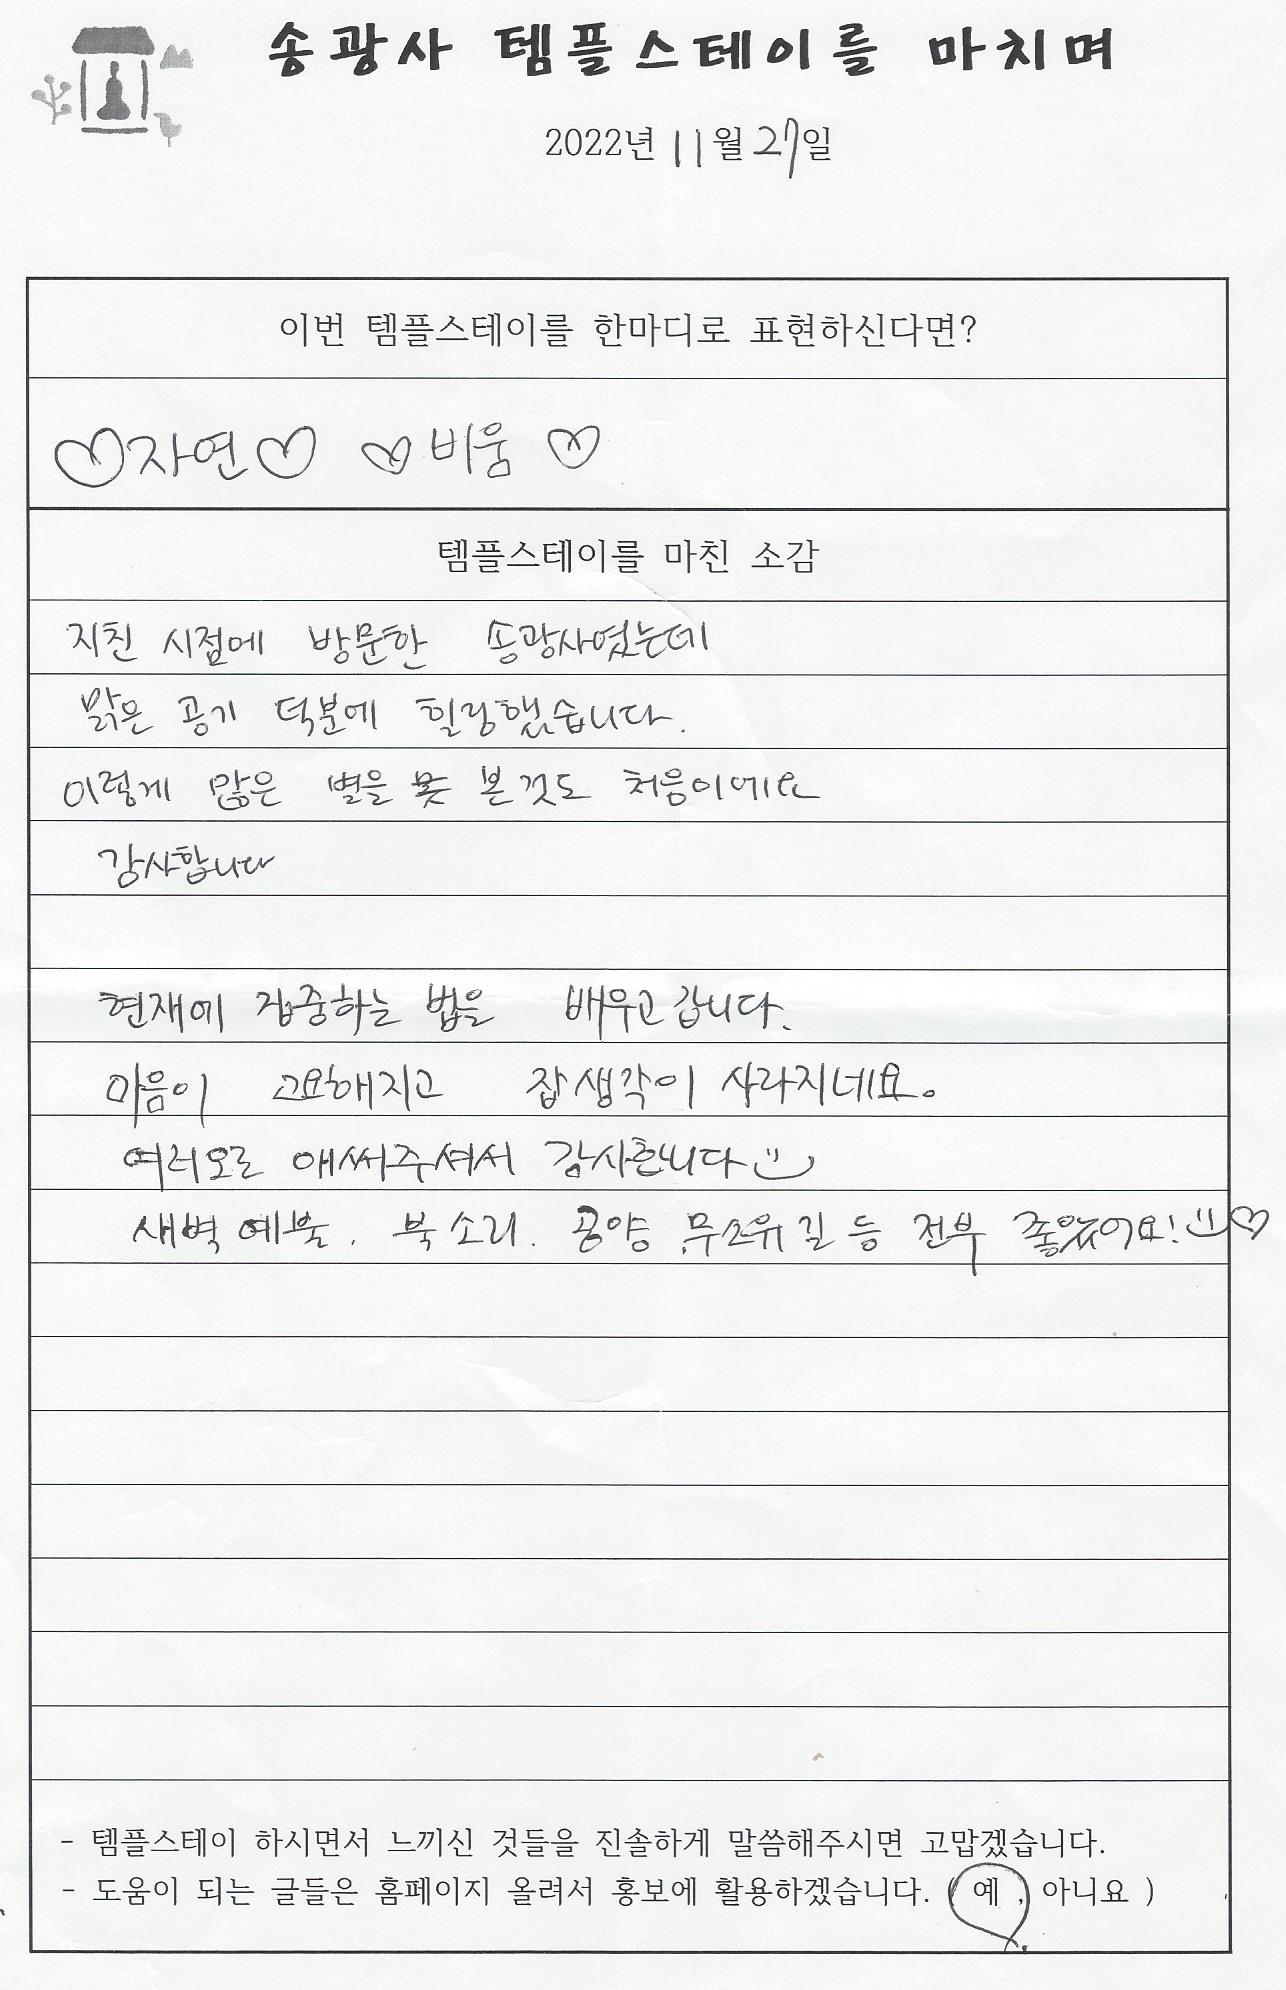 송광사 템플스테이를 마치며
2022년 11월 27일
이번 템플스테이를 한마디로 표현하신다면?
♡자연♡ ♡비움♡
템플스테이를 마친 소감
지친 시점에 방문한 송광사였는데
맑은 공기 덕분에 힐링했습니다.
이렇게 많은 별을 본 것도 처음이에요
감사합니다
현재에 집중하는 법을 배우고 갑니다.
마음이 고요해지고 잡생각이 사라지네요.
여러모로 애써주셔서 감사합니다
새벽 예불, 북소리, 공양, 무소유길 등 전부 좋았어요! ♡
- 템플스테이 하시면서 느끼신 것들을 진솔하게 말씀해주시면 고맙겠습니다.
- 도움이 되는 글들은 홈페이지 올려서 홍보에 활용하겠습니다. ( 예 , 아니요 )